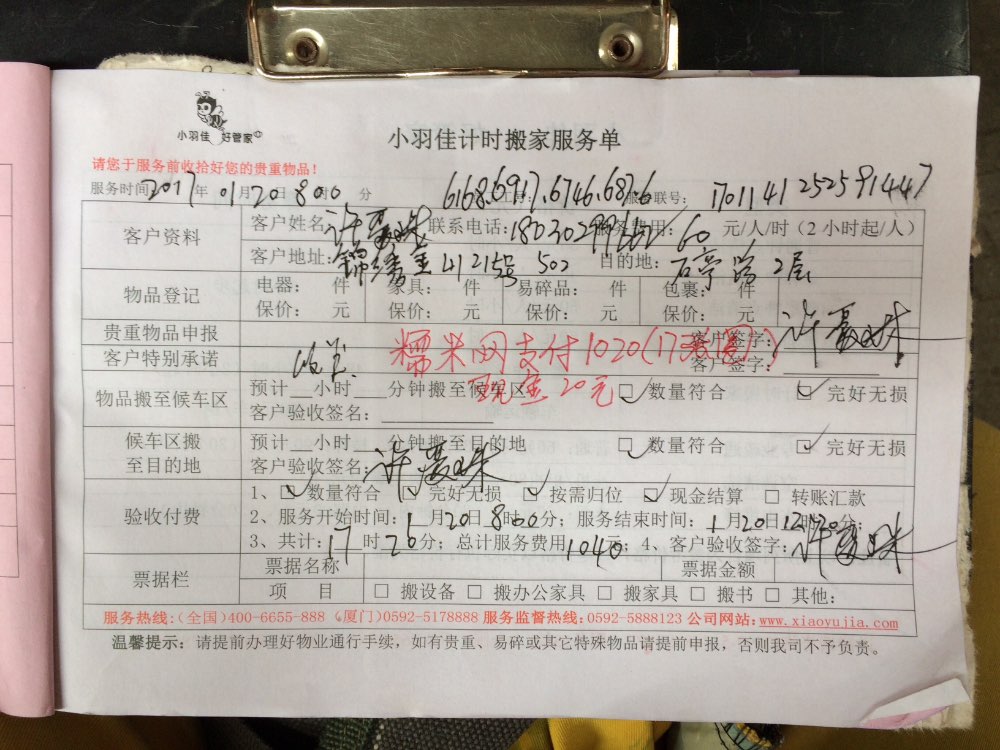 小羽佳 好管家
小羽佳计时搬家服务单
请您于服务前收拾好您的贵重物品！
服务时间 2017 年 01 月 20 日 8 时 00 分 6168.6917.6746.6876 联号： 170114125259 1447
客户资料 客户姓名 许 联系电话：180302 费用： 60 元/人/时（2 小时起/人）
客户地址： 锦绣 502 目的地： 石亭路 2层
物品登记 电器： 件 家具： 件 易碎品： 件 包裹： 件
保价： 元 保价： 元 保价： 元 保价： 元
贵重物品申报 客户签字： 许
客户特别承诺 糯米网支付1020（17张 ） 客户签字：
物品搬至候车区 预计 小时 分钟搬至候车区 现金20元 □ 数量符合 ☑ 完好无损
客户验收签名：
候车区搬至目的地 预计 小时 分钟搬至目的地 □ 数量符合 ☑ 完好无损
客户验收签名： 许
验收付费 1、☑ 数量符合 ☑ 完好无损 ☑ 按需归位 ☑ 现金结算 □ 转账汇款
2、服务开始时间：1 月 20 日 8 时 00 分；服务结束时间：1 月 20 日 12 20 分；
3、共计：17 时 20 分；总计服务费用 1040 元；4、客户验收签字： 许
票据栏 票据名称 票据金额
项 目 □ 搬设备 □ 搬办公家具 □ 搬家具 □ 搬书 □ 其他:
服务热线:(全国)400-6655-888 (厦门)0592-5178888 服务监督热线:0592-5888123 公司网站:www.xiaoyujia.com
温馨提示：请提前办理好物业通行手续，如有贵重、易碎或其它特殊物品请提前申报，否则我司不予负责。